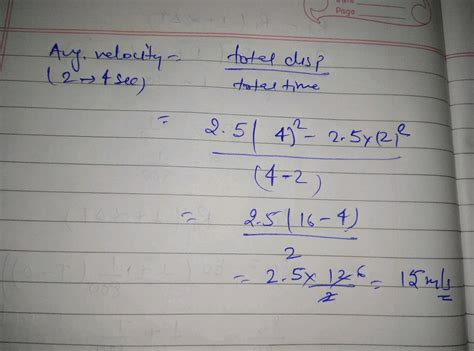 Date
Page
Avg. velocity = total disp / total time
(2→4 sec)
= 2.5(4)² - 2.5×(2)² / (4-2)
= 2.5(16-4) / 2
= 2.5×12 6 / 2 = 15 m/s